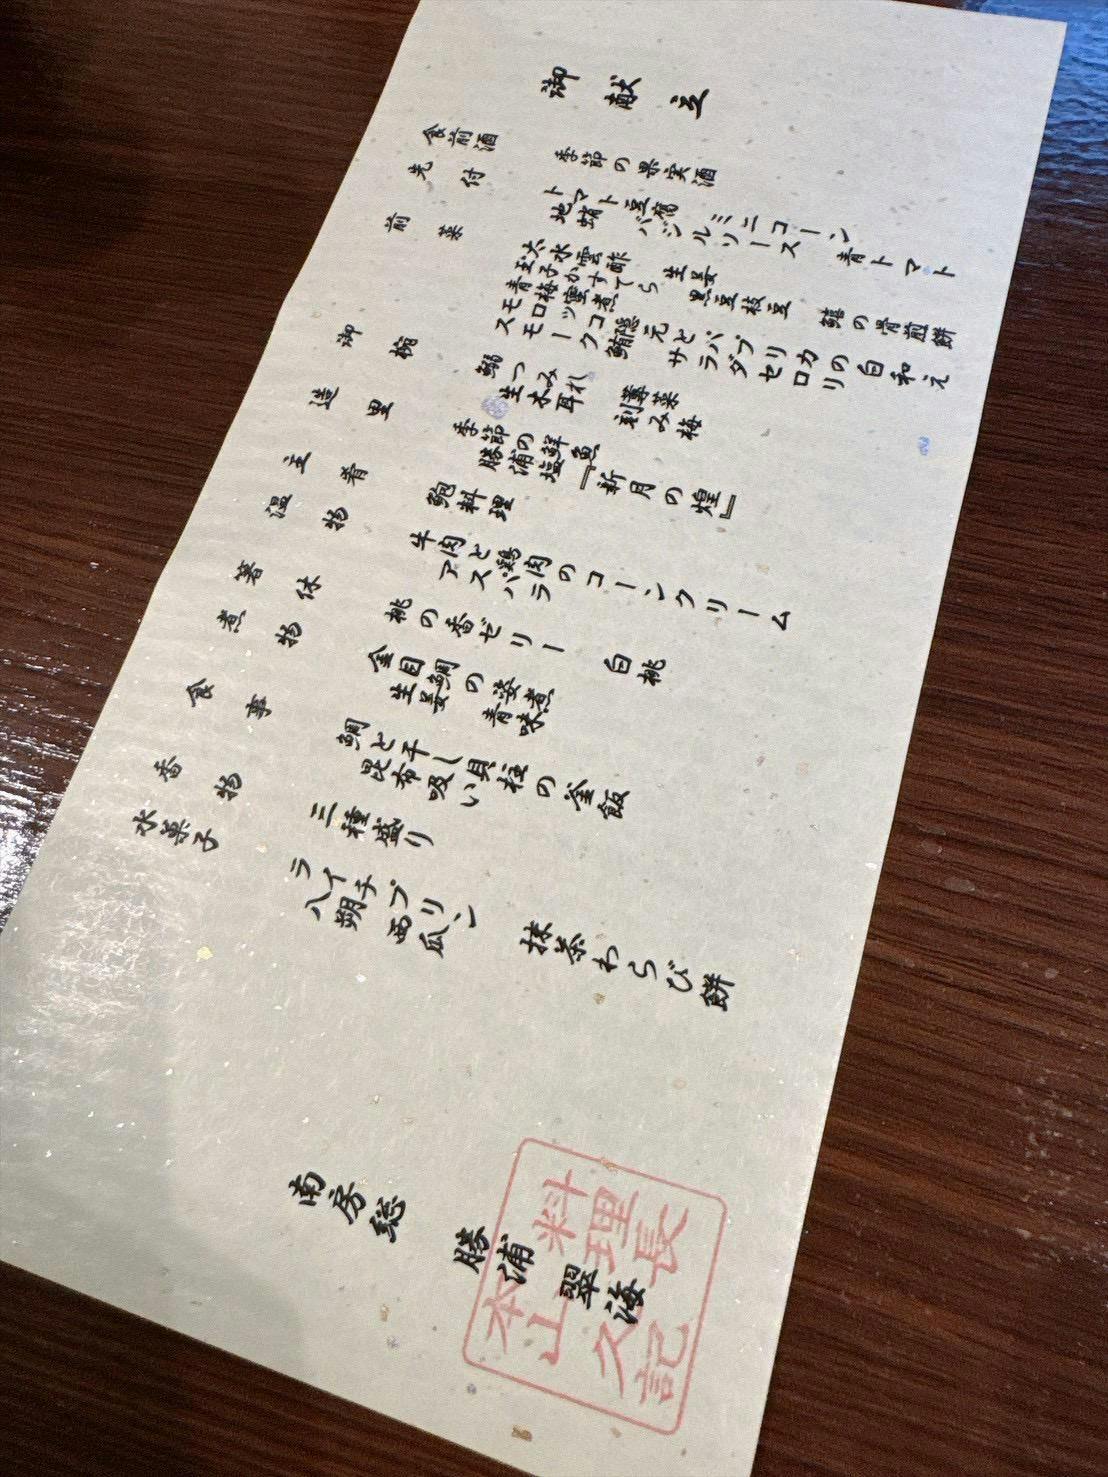 御献立
食前酒 季節の果実酒
先付 トマト豆腐 ミニコーン 青トマト
地蛸 バジルソース
前菜 太水雲酢 生姜 鱚の骨煎餅
玉子かすてら 黒豆枝豆
青梅蜜煮
スモークコーン 鮪と
モロッコ隠元とパプリカの白和え
サラダセロリ
御椀 鰯つみれ 蓴菜
生木耳 刻み梅
造里 季節の鮮魚
勝浦の塩『新月の煌』
主肴 鮑料理
温物 牛肉と鶏肉のコーンクリーム
アスパラ
箸休 桃の香ゼリー 白桃
煮物 金目鯛の姿煮
生姜 青味
食事 鯛と干し貝柱の釜飯
昆布吸い
香物 三種盛り
水菓子 ライチプリン 抹茶わらび餅
八朔 西瓜
南房総 勝浦 翠海
料理長
本山 久記